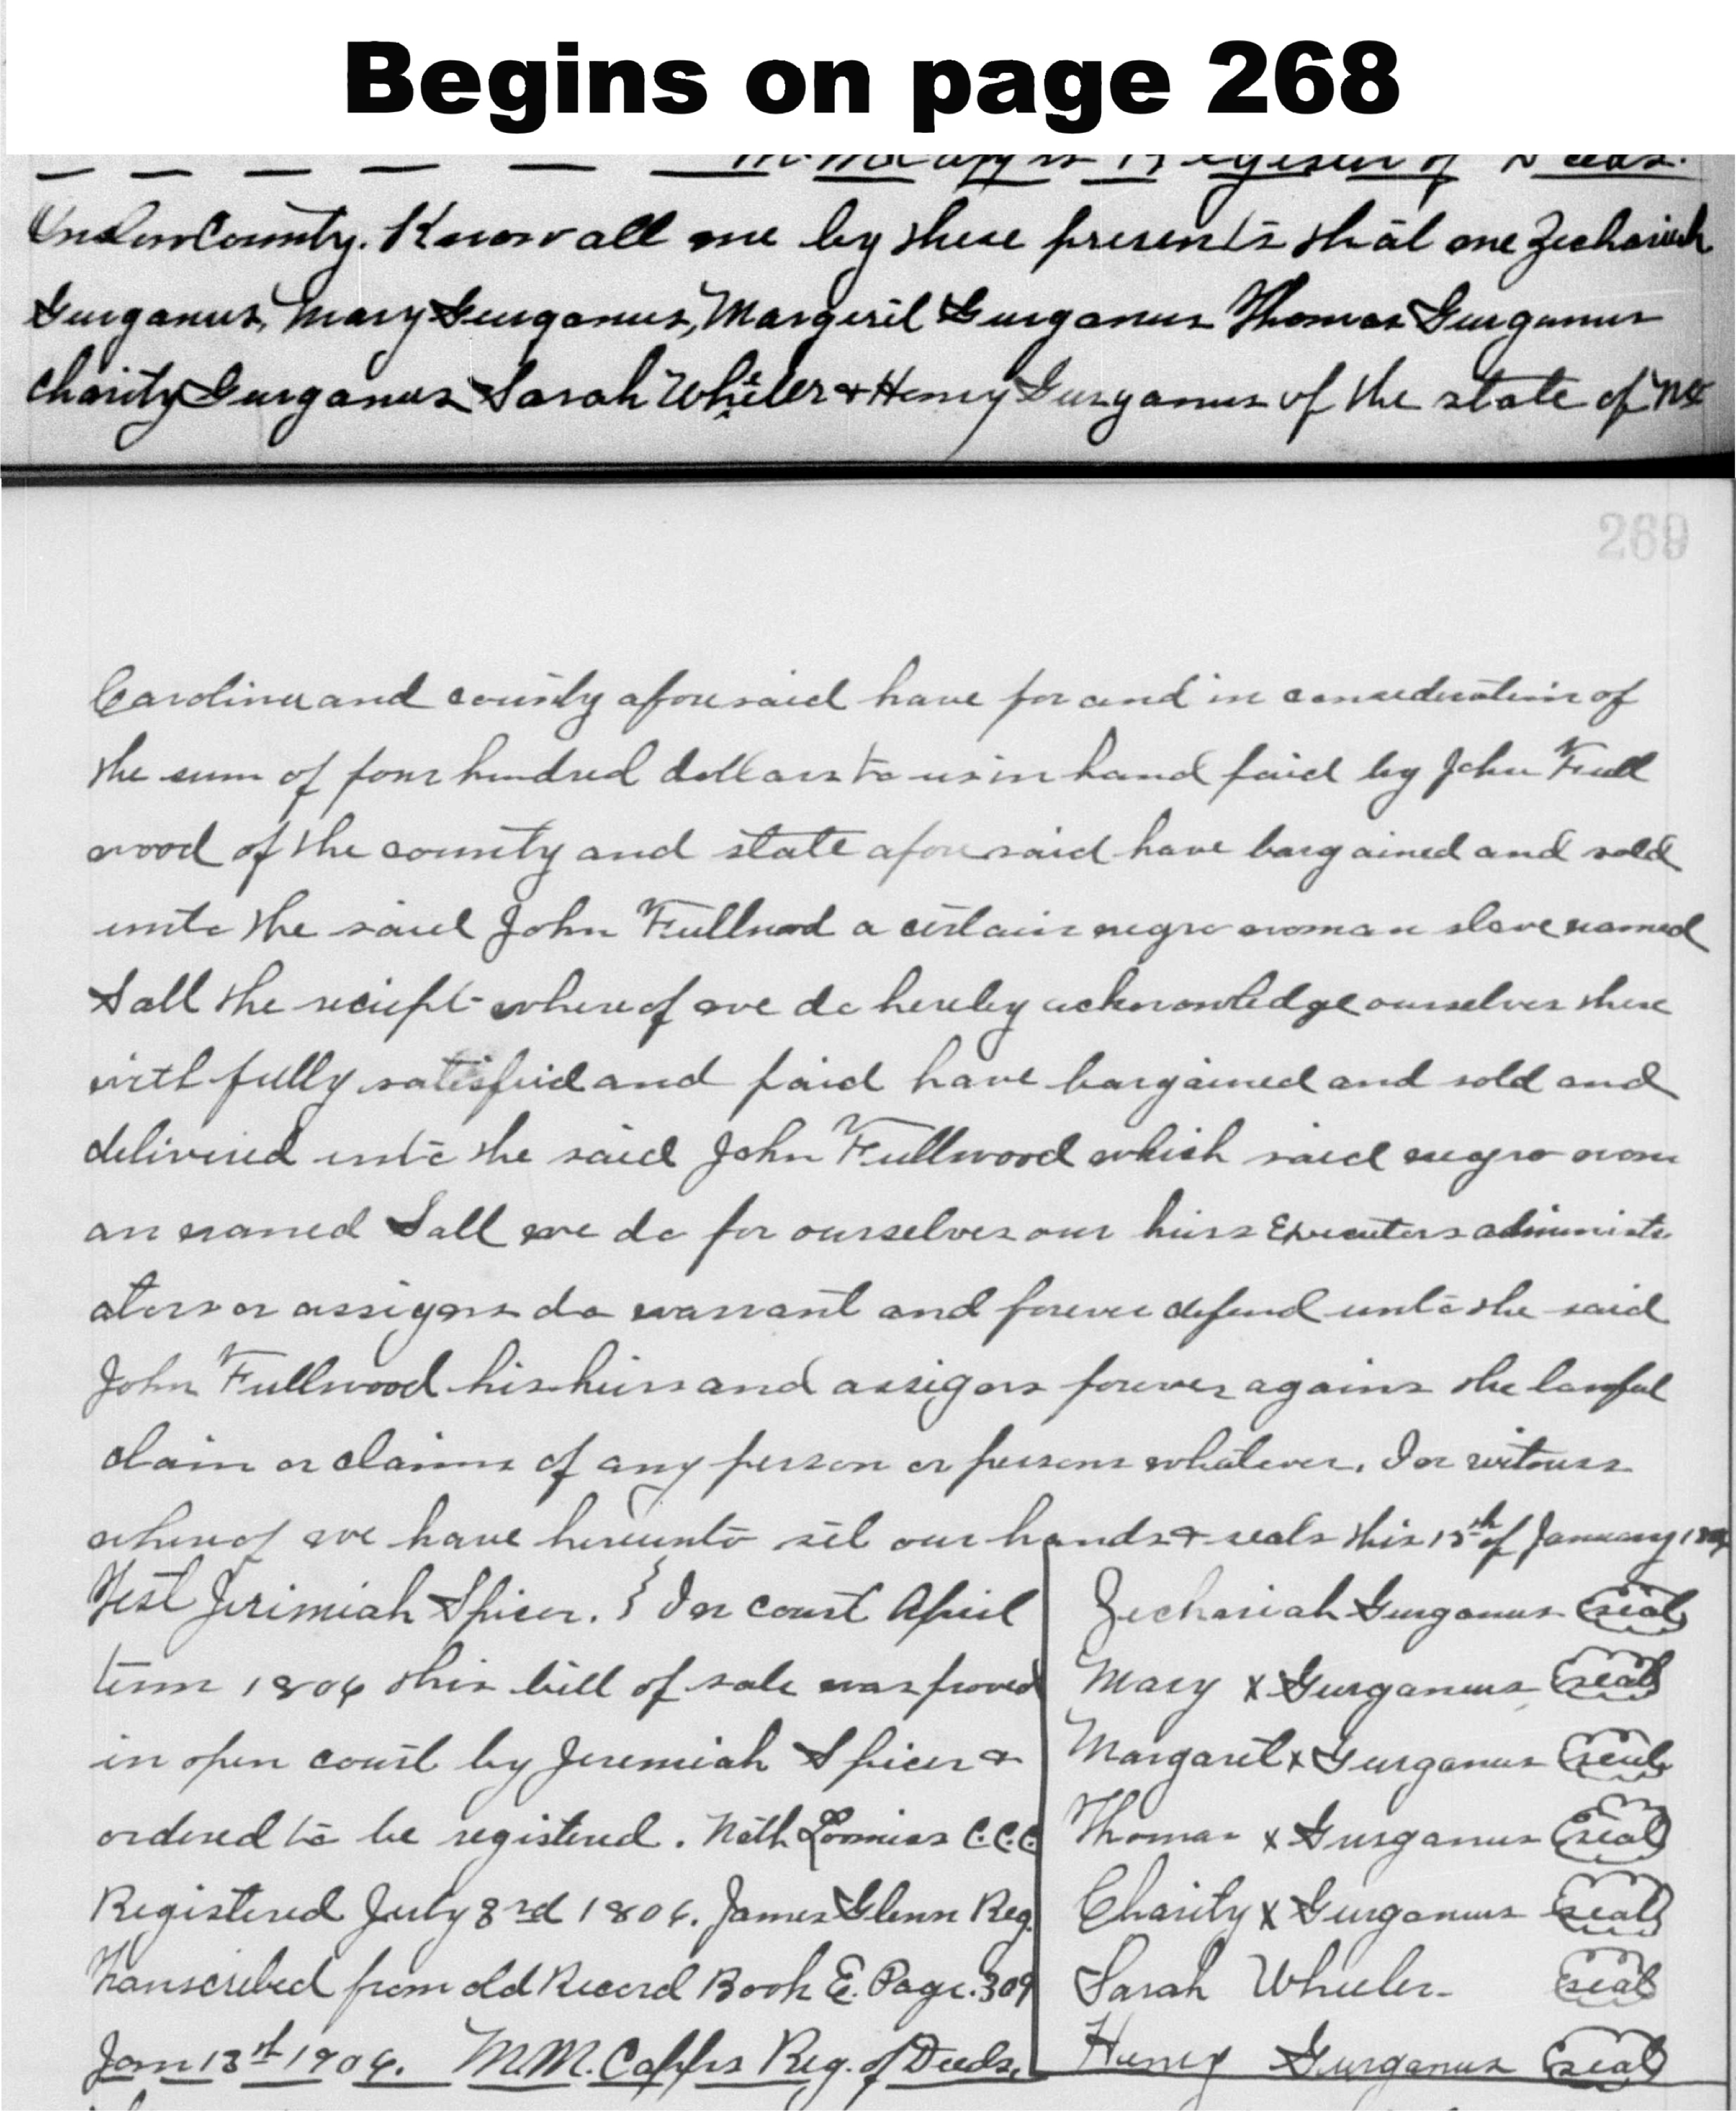 Begins on page 268
M. M. Capps Register of Deeds.
Onslow County. Know all me by these presents that one Zechariah
Gurganus, Mary Gurganus, Margeril Gurganus Thomas Gurganus
Charity Gurganus Sarah Wheler & Henry Gurganus of the state of No
269
Carolina and county aforesaid have for and in consideration of
the sum of four hundred dollars to us in hand paid by John Full
wood of the county and state aforesaid have bargained and sold
unto the said John Fullwod a certain negro woman slave named
Sall the reciept whereof we do hereby acknowledge ourselves there
with fully satisfied and paid have bargained and sold and
delivered unto the said John Fullwood which said negro wom
an named Sall we do for ourselves our heirs Executors administr
ators or assigns do warrant and forever defend unto the said
John Fullwood his heirs and assigns forever agains the lawful
claim or claims of any person or persons whatever. In witness
whereof we have hereunto set our hands & seals this 15th of January
Test Jerimiah Spicer. } In court April
term 1806 this bill of sale was proved
in open court by Jeremiah Spicer &
ordered to be registered. Nath Loomiss C.C.C
Registered July 3rd 1806. James Glenn Reg.
Transcribed from old Record Book E. Page. 309
Jan 13th 1906. M.M. Capps Reg. of Deeds.
Zechariah Gurganus seal
Mary x Gurganus seal
Margaret x Gurganus seal
Thomas x Gurganus seal
Charity x Gurganus seal
Sarah Wheeler seal
Henry Gurganus seal